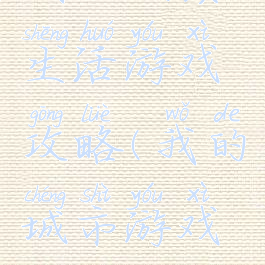 shēng huó yóu xì
生活游戏
gōng lüè wǒ de
攻略(我的
chéng shì yóu xì
城市游戏